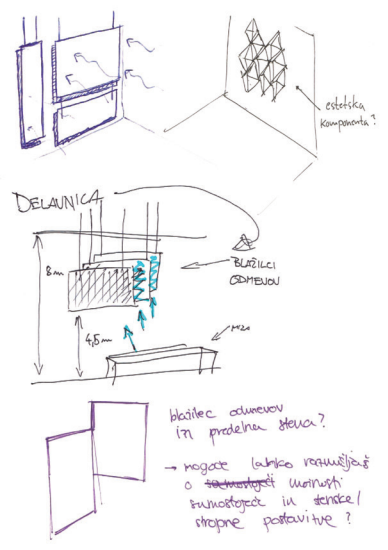 estetska
komponenta?
DELAVNICA
BLAŽILCI
ODMEVOV
8m
4,5m
miza
blažilec odmevov
in predelna stena?
→ mogoče lahko razmišljaš
o samostoječi možnosti
samostoječe in stenske/
stropne postavitve?